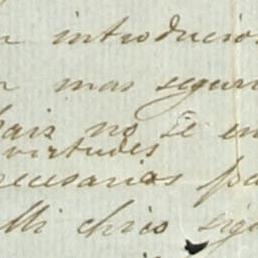 n introducion
mas segur
pais no se en
virtudes
necesarias pa
Mi chico sigu